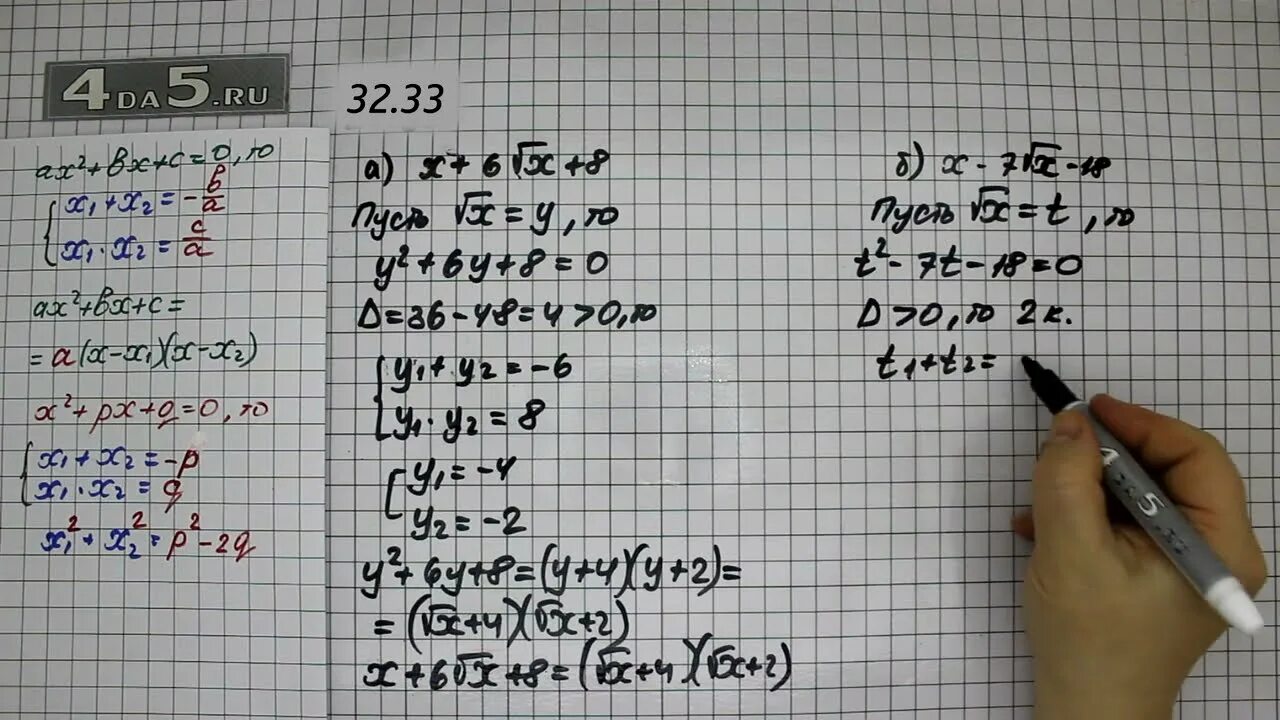 4DA5.RU
32.33
ax²+bx+c=0, то
x₁+x₂=-b/a
x₁·x₂=c/a
ax²+bx+c=
=a(x-x₁)(x-x₂)
x²+px+q=0, то
x₁+x₂=-p
x₁·x₂=q
x₁²+x₂²=p²-2q
а) x+6√x+8
Пусть √x=y, то
y²+6y+8=0
D=36-48=4>0, то
y₁+y₂=-6
y₁·y₂=8
y₁=-4
y₂=-2
y²+6y+8=(y+4)(y+2)=
=(√x+4)(√x+2)
x+6√x+8=(√x+4)(√x+2)
б) x-7√x-18
Пусть √x=t, то
t²-7t-18=0
D>0, то 2к.
t₁+t₂=